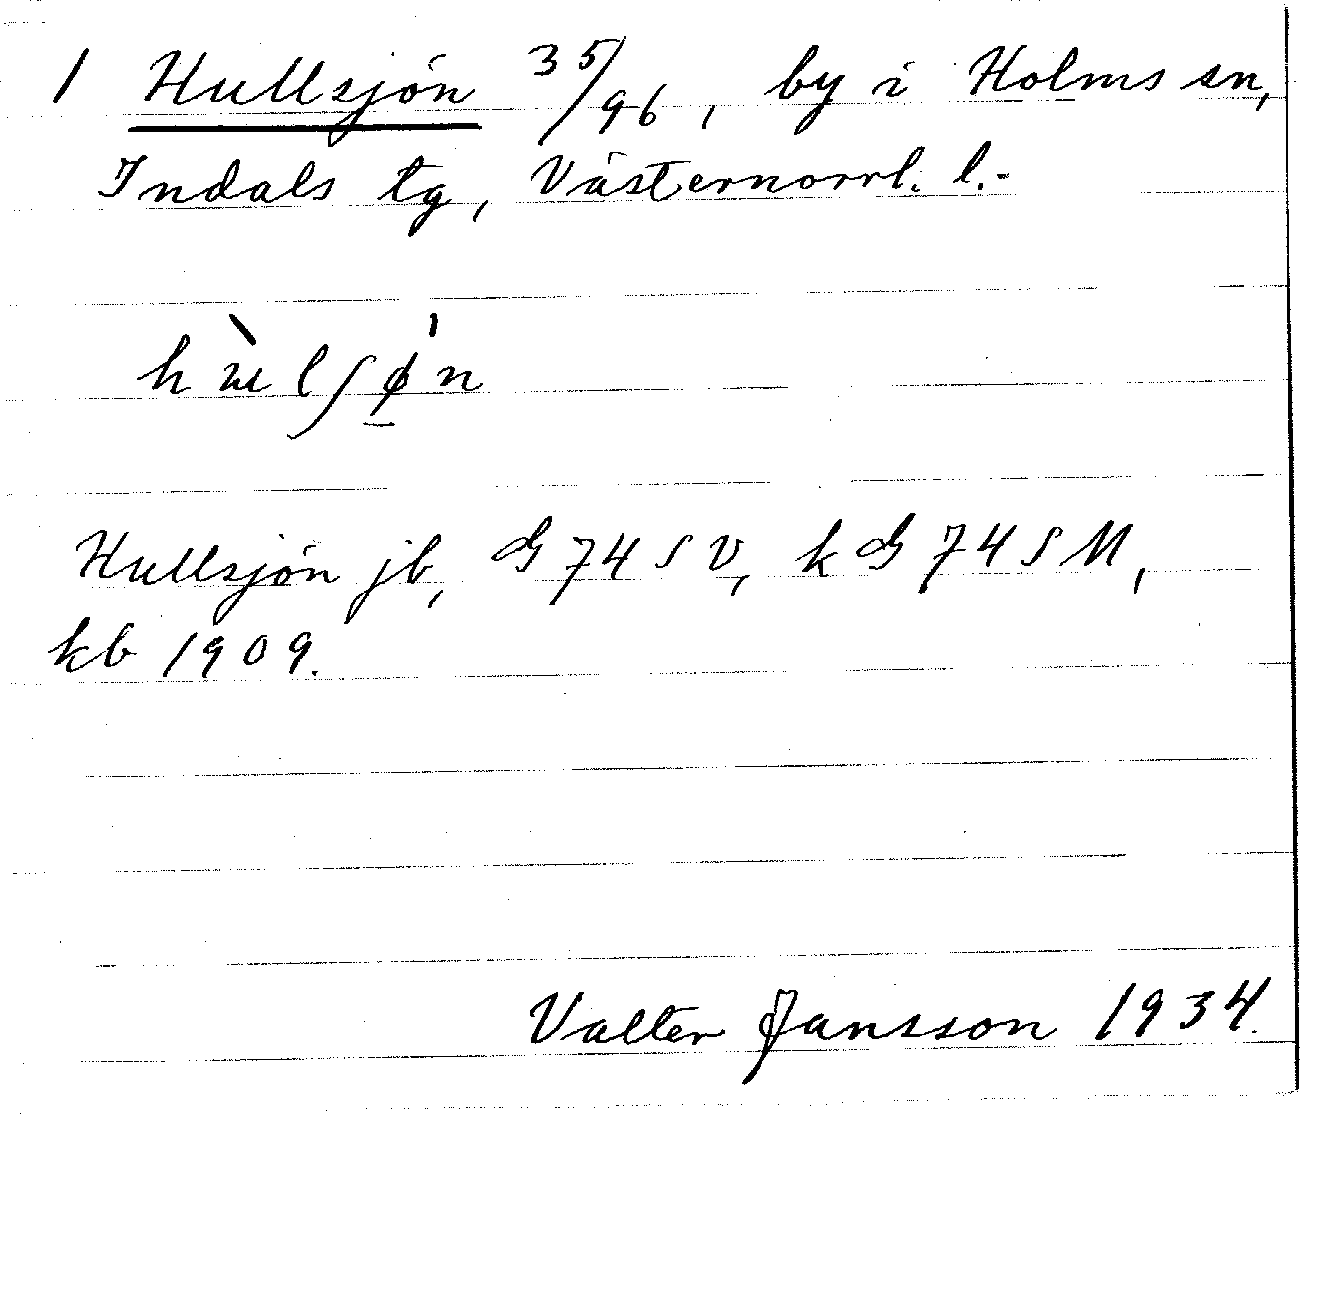 1 Hullsjön 35/96, by i Holms sn,
Indals tg, Västernorrl. l.-
Hullsjön jb, G 74 S V, k G 74 S M,
kb 1909.
Valter Jansson 1934.